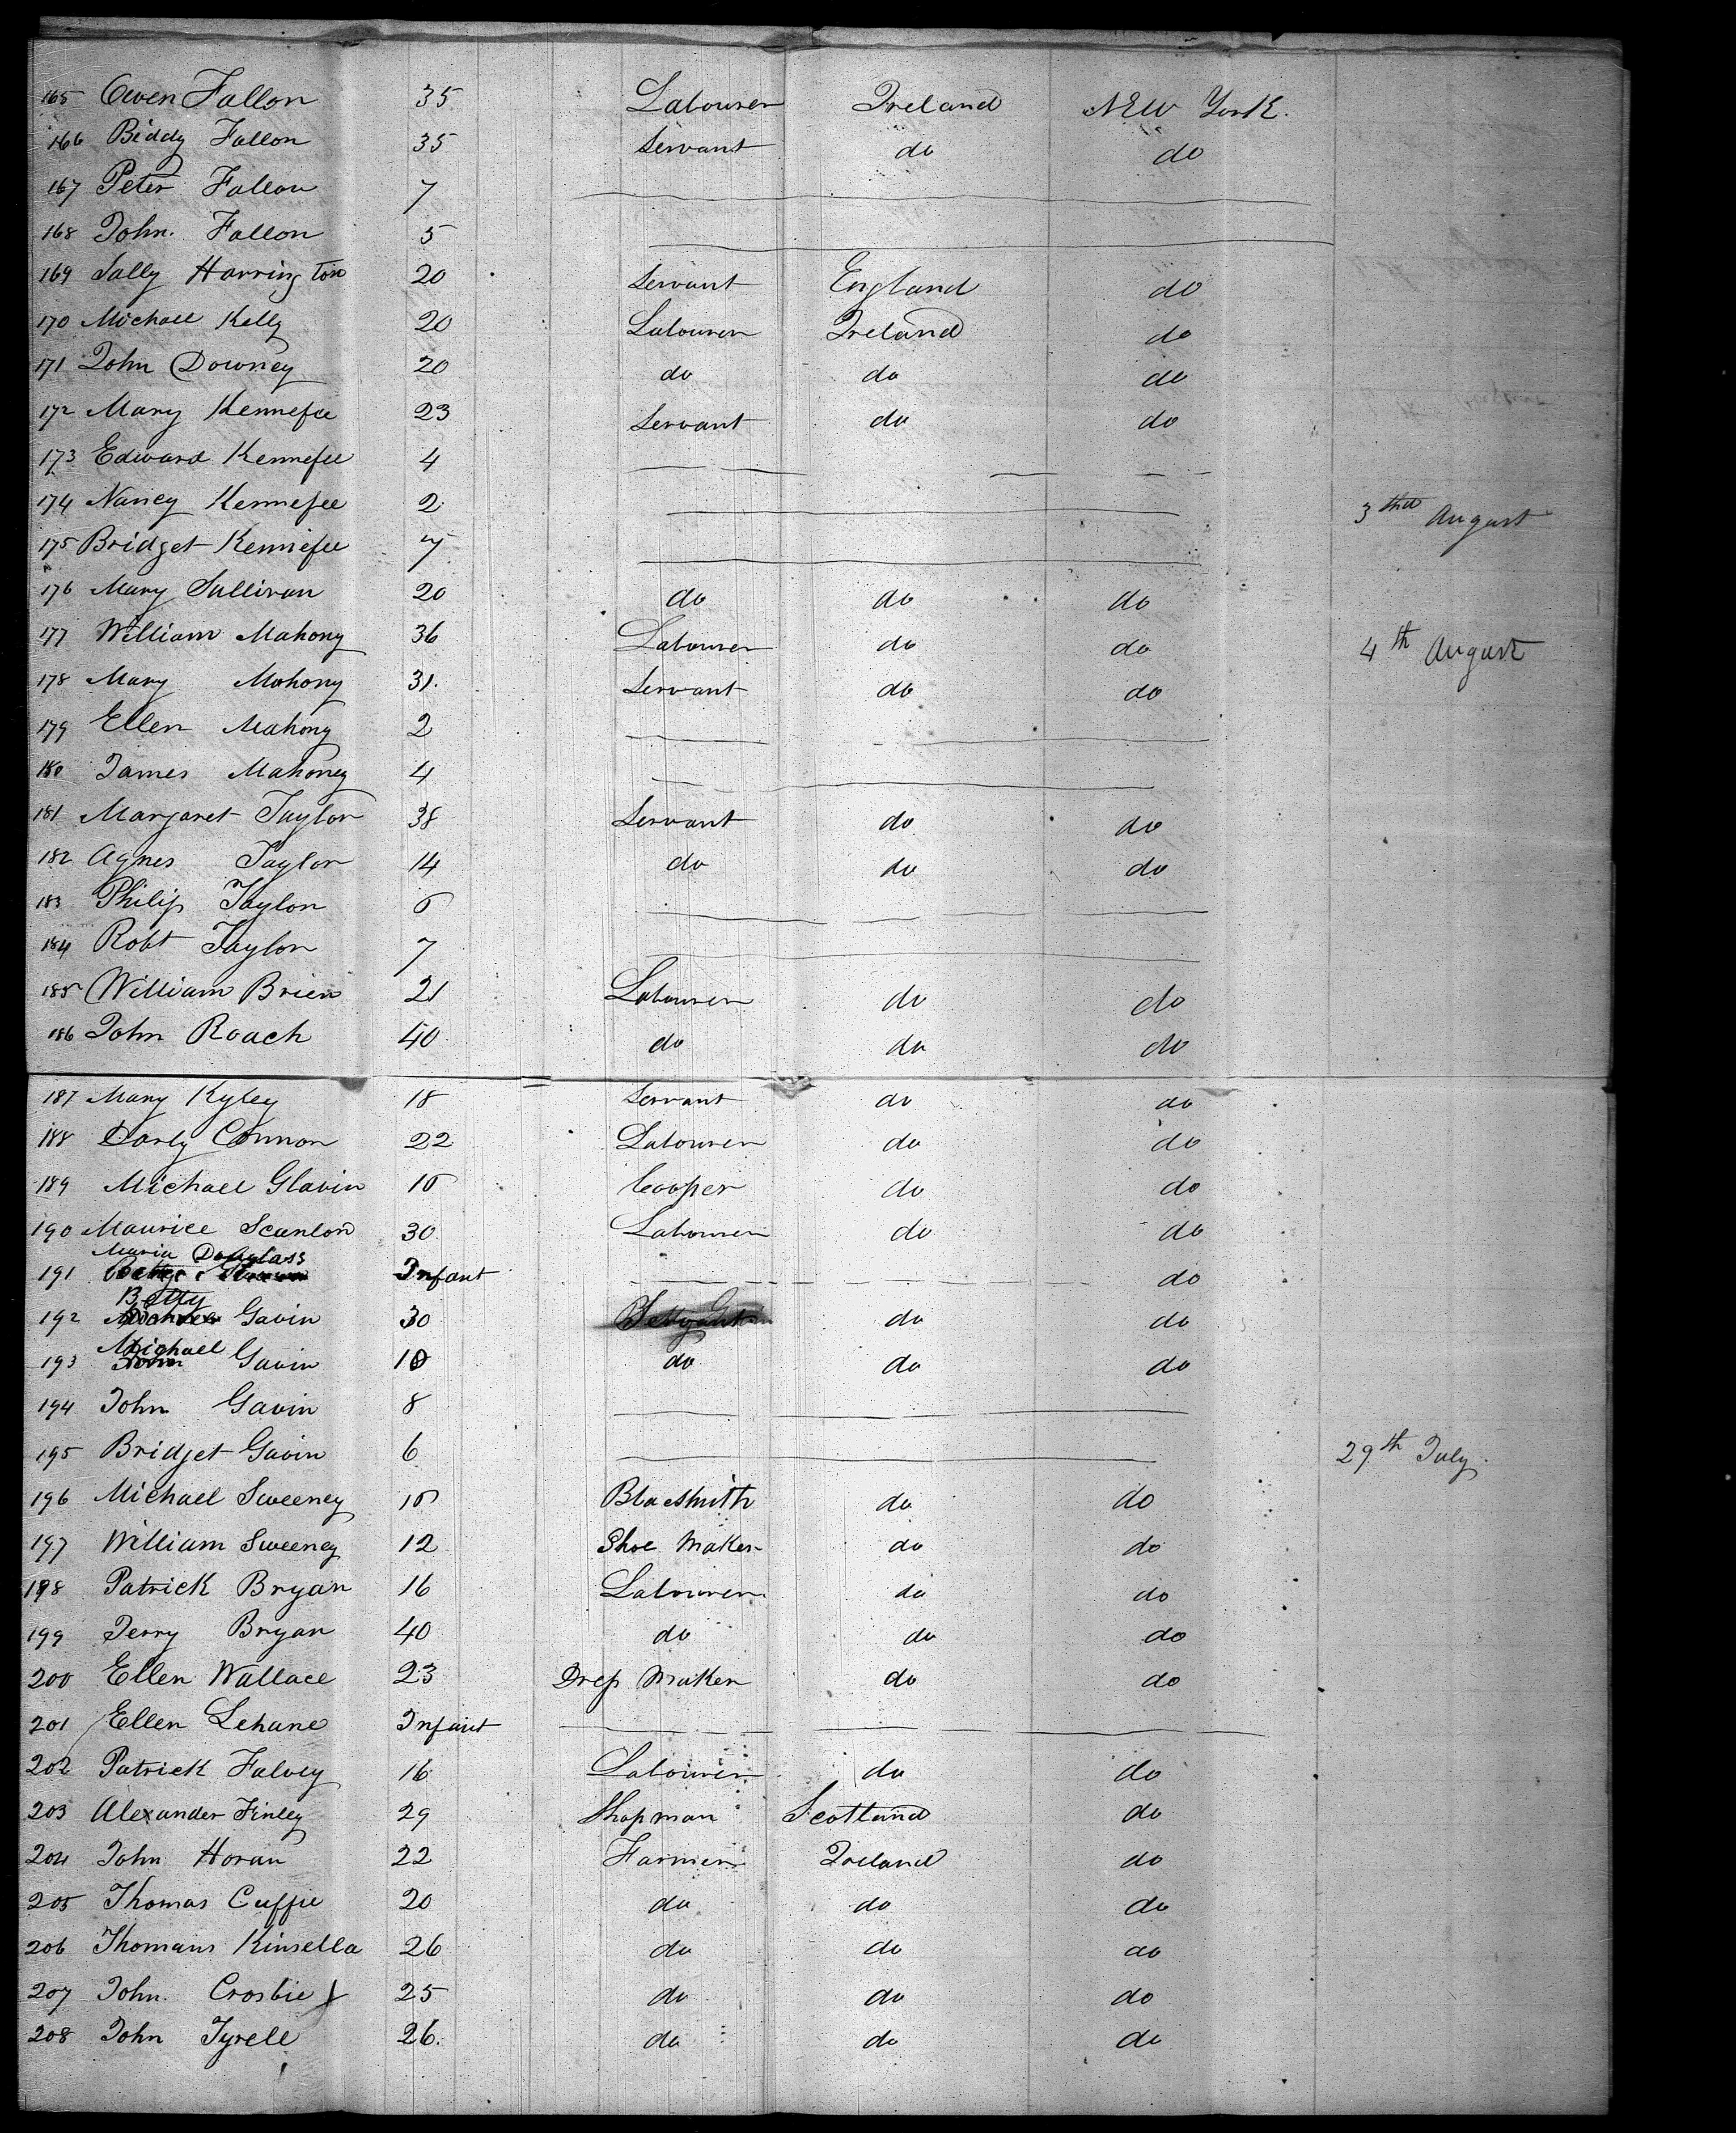 165 Owen Fallon 35 Labourer Ireland New York.
166 Biddy Fallon 35 Servant do do
167 Peter Fallon 7
168 John. Fallon 5
169 Sally Harrington 20 Servant England do
170 Michael Kelly 20 Labourer Ireland do
171 John Downey 20 do do do
172 Mary Kennefee 23 Servant do do
173 Edward Kennefee 4
174 Nancy Kennefee 2 3thd August
175 Bridget Kennefee 7
176 Mary Sullivan 20 do do do
177 William Mahony 36 Labourer do do 4th August
178 Mary Mahony 31. Servant do do
179 Ellen Mahony 2
180 James Mahoney 4
181 Margaret Taylor 38 Servant do do
182 Agnes Taylor 14 do do do
183 Philip Taylor
184 Robt Taylor 7
185 William Brien 21 Labourer do do
186 John Roach 40 do do do
187 Mary Kyley 18 Servant do do
188 Darly Connor 22 Labourer do do
189 Michael Glavin Cooper do do
190 Maurice Scanlon 30 Labourer do do
Maria Douglass
191 Infant do
Betty
192 Gavin 30 do do
Michael
193 John Gavin 10 do do do
194 John Gavin 8
195 Bridget Gavin 6 29th July.
196 Michael Sweeney Blacsmith do do
197 William Sweeney 12 Shoe Maker do do
198 Patrick Bryan 16 Labourer do do
199 Jerry Bryan 40 do do do
200 Ellen Wallace 23 Dress Maker do do
201 Ellen Lehane Infant
202 Patrick Falvey 16 Labourer do do
203 Alexander Finley 29 Shopman Scotland do
204 John Horan 22 Farmer Ireland do
205 Thomas Cuffie 20 do do do
206 Thomans Kinsella 26 do do do
207 John. Crosbie 25 do do do
208 John Tyrell 26. do do do